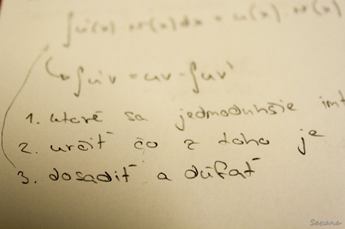 ∫u'(x)·v(x)dx = u(x)·v(x)
↳ ∫u'v = uv - ∫uv'
1. ktoré sa jednoduhšie int
2. určiť čo z toho je
3. dosadiť a dúfať
Sabana